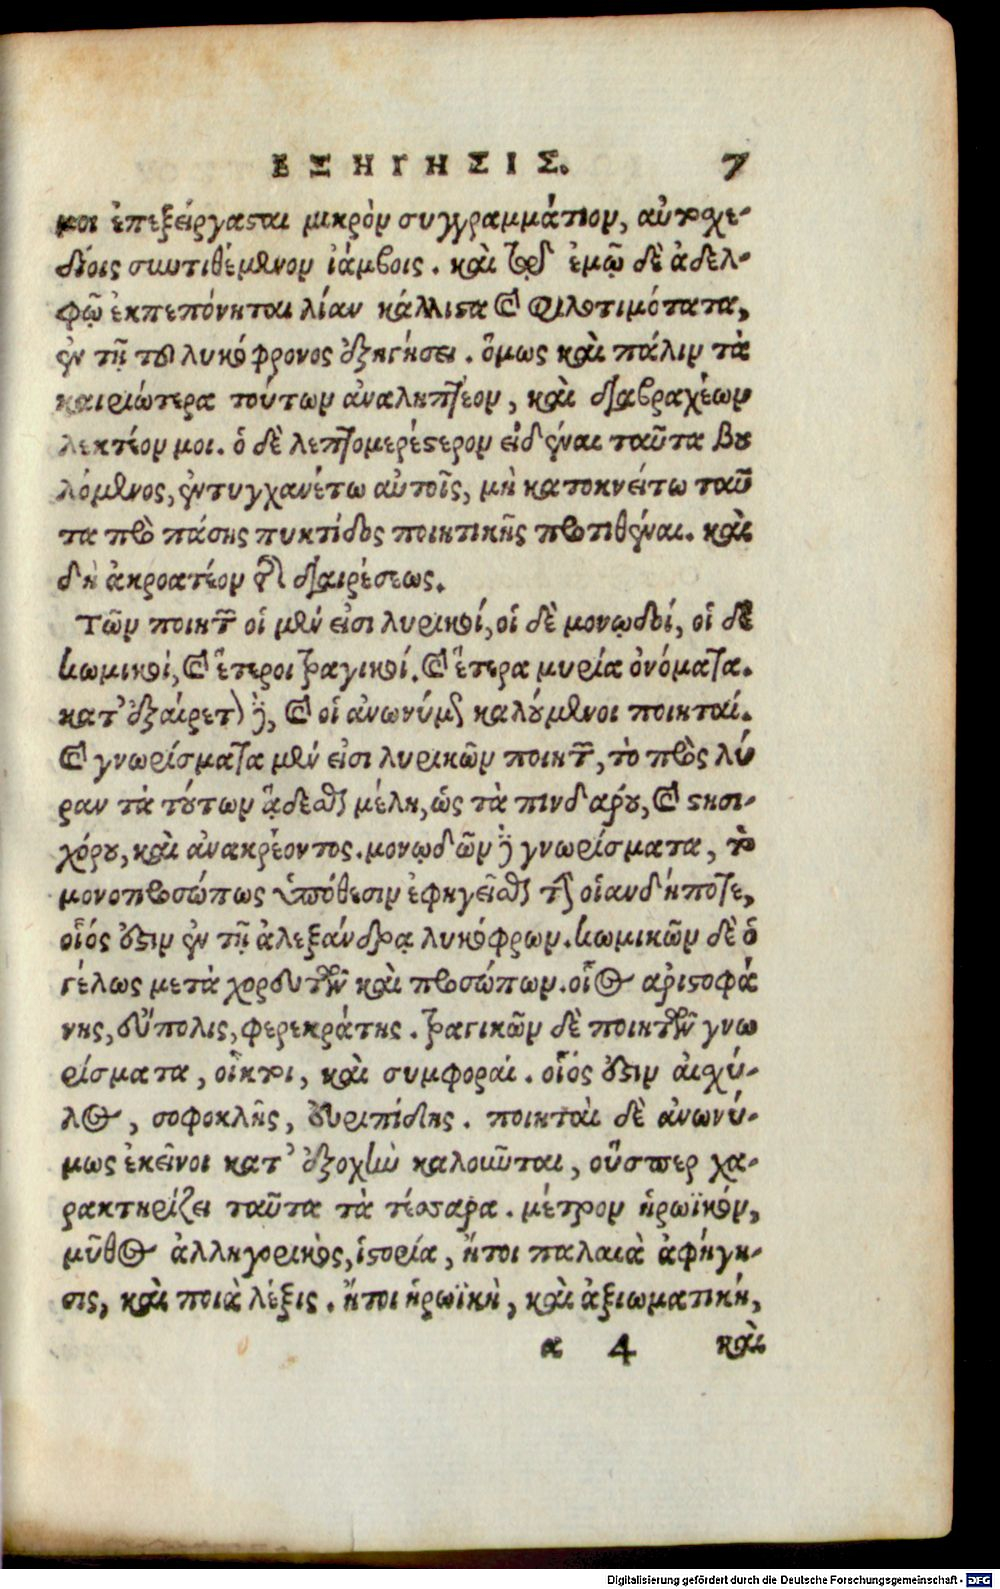 ΕΞΗΓΗΣΙΣ. 7
μοι ἐπεξείργασται μικρὸν συγγραμμάτιον, αὐτοσχε-
δίοις συντιθέμενον ἰάμβοις. καὶ τῷ ἐμῷ δὲ ἀδελ-
φῷ ἐκπεπόνηται λίαν κάλλιστα καὶ φιλοτιμότατα,
ἐν τῇ τοῦ λυκόφρονος ἐξηγήσει. ὅμως καὶ πάλιν τὰ
καιριώτερα τούτων ἀναληπτέον, καὶ διαβραχέων
λεκτέον μοι. ὁ δὲ λεπτομερέστερον εἰδέναι ταῦτα βου
λόμενος, ἐντυγχανέτω αὐτοῖς, μὴ κατοκνείτω ταῦ
τα πρὸ πάσης πυκτίδος ποιητικῆς προτιθέναι. καὶ
δὴ ἀκροατέον τῆς διαιρέσεως.
Τῶν ποιητῶν οἱ μέν εἰσι λυρικοί, οἱ δὲ μονῳδοί, οἱ δὲ
κωμικοί, καὶ ἕτεροι τραγικοί. καὶ ἕτερα μυρία ὀνόματα.
κατ' ἐξαίρετον δὲ, καὶ οἱ ἀνωνύμως καλούμενοι ποιηταί.
καὶ γνωρίσματα μέν εἰσι λυρικῶν ποιητῶν, τὸ πρὸς λύ
ραν τὰ τούτων ᾄδεσθαι μέλη, ὡς τὰ πινδάρου, καὶ στησι-
χόρου, καὶ ἀνακρέοντος. μονῳδῶν δὲ γνωρίσματα, τὸ
μονοπροσώπως ὑπόθεσιν ἐφηγεῖσθαι τὴν οἱανδήποτε,
οἷός ἐστιν ἐν τῇ ἀλεξάνδρᾳ λυκόφρων. κωμικῶν δὲ ὁ
γέλως μετὰ χορευτῶν καὶ προσώπων. οἷος ἀριστοφά
νης, εὔπολις, φερεκράτης. τραγικῶν δὲ ποιητῶν γνω
ρίσματα, οἶκτοι, καὶ συμφοραί. οἷός ἐστιν αἰσχύ-
λος, σοφοκλῆς, εὐριπίδης. ποιηταὶ δὲ ἀνωνύ-
μως ἐκεῖνοι κατ' ἐξοχὴν καλοῦνται, οὕσπερ χα-
ρακτηρίζει ταῦτα τὰ τέσσαρα. μέτρον ἡρωϊκόν,
μῦθος ἀλληγορικὸς, ἱστορία, ἤτοι παλαιὰ ἀφήγη-
σις, καὶ ποιὰ λέξις. ἤτοι ἡρωϊκὴ, καὶ ἀξιωματική,
α 4 καὶ
Digitalisierung gefördert durch die Deutsche Forschungsgemeinschaft - DFG